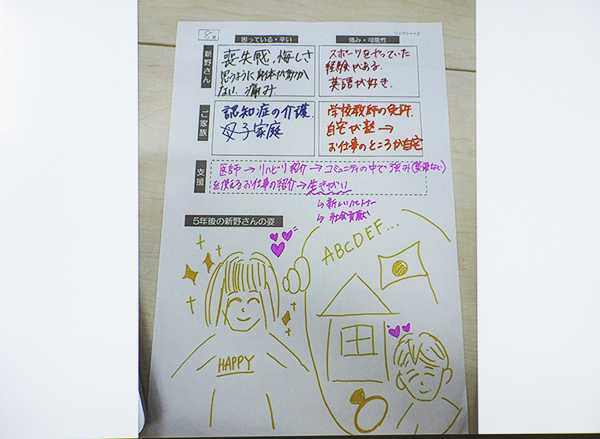 ワークシート2
困っている・辛い
強み・可能性
新野さん
喪失感、悔しさ
思うように身体が動か
ない、痛み
スポーツをやっていた
経験がある。
英語が好き。
ご家族
認知症の介護。
母子家庭
学校教師の免許。
自宅が塾→
お仕事のところが自宅
支援
医師→リハビリ紹介→コミュニティの中で強み(英語など)
を使えるお仕事の紹介→生きがい
↳新しいパートナー
↳社会貢献
5年後の新野さんの姿
ABCDEF...
HAPPY